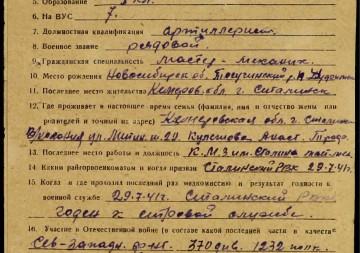 5. Образование 3 кл.
6. На ВУС 7.
7. Должностная квалификация артиллерист
8. Военное звание рядовой
9. Гражданская специальность мастер-механик
10. Место рождения Новосибирск об. Тогучинский р.
11. Последнее место жительства Кемеров. обл г. Сталинск
12. Где проживает в настоящее время семья (фамилия, имя и отчество жены или
родителей и точный их адрес) Кемеровская обл г. Сталинск
ул. 20 Кулешова Анаст.
13. Последнее место работы и должность К.М.З им. Сталина
14. Каким райгорвоенкоматом и когда призван Сталинский РВК 29-7-41г.
15. Когда и где проходил последний раз медкомиссию и результат годности к
военной службе 29-7-41г. Сталинский РВК
годен к строевой службе
16. Участие в Отечественной войне (в составе какой последней части в качестве
Сев-Западн. фронт. 370 див. 1232 полк.